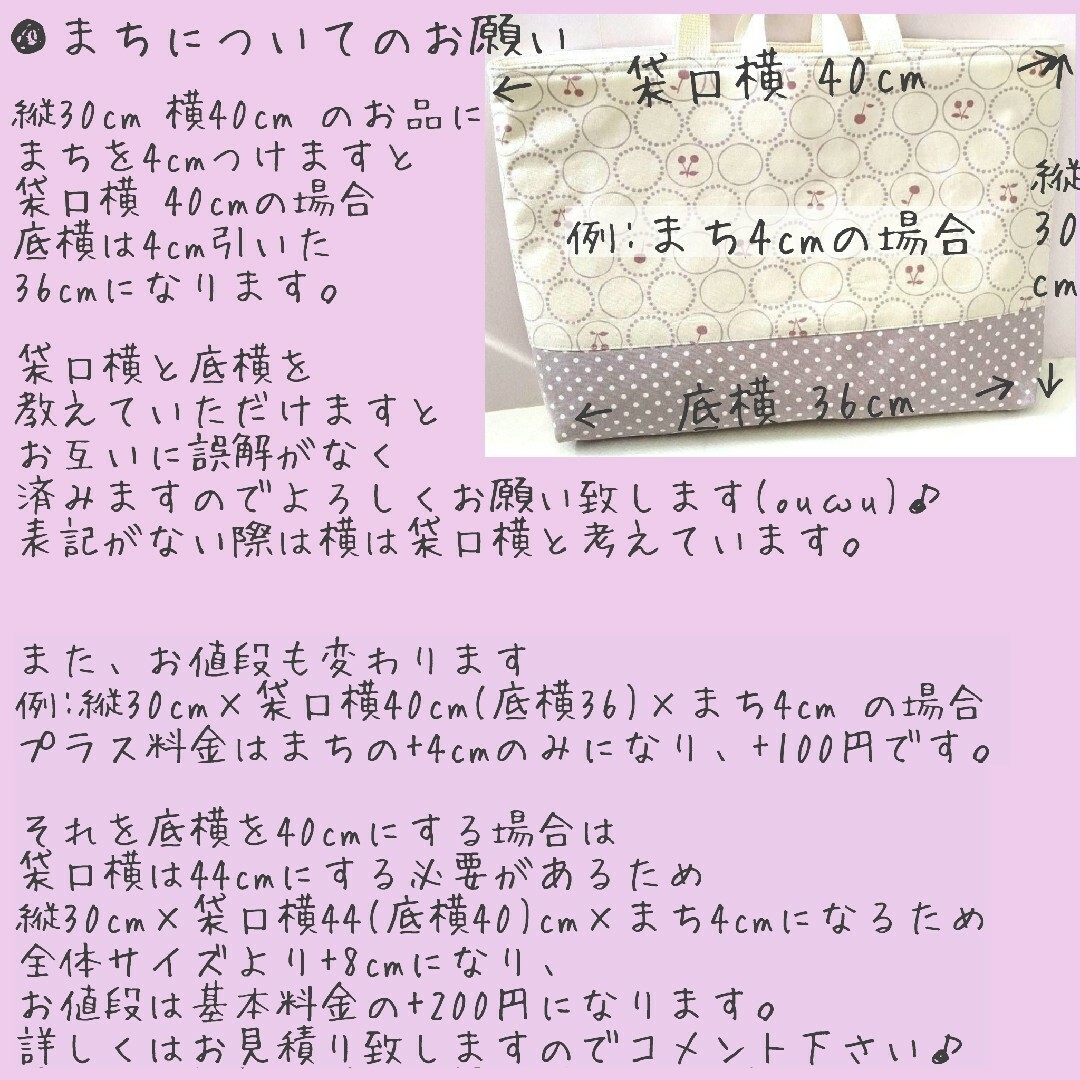 まちについてのお願い
縦30cm 横40cm のお品に
まちを4cmつけますと
袋口横 40cmの場合
底横は4cm引いた
36cmになります。
袋口横 40cm
縦
30
cm
例:まち4cmの場合
底横 36cm
袋口横と底横を
教えていただけますと
お互いに誤解がなく
済みますのでよろしくお願い致します(ouωu)♪
表記がない際は横は袋口横と考えています。
また、お値段も変わります
例:縦30cm×袋口横40cm(底横36)×まち4cm の場合
プラス料金はまちの+4cmのみになり、+100円です。
それを底横を40cmにする場合は
袋口横は44cmにする必要があるため
縦30cm×袋口横44(底横40)cm×まち4cmになるため
全体サイズより+8cmになり、
お値段は基本料金の+200円になります。
詳しくはお見積り致しますのでコメント下さい♪